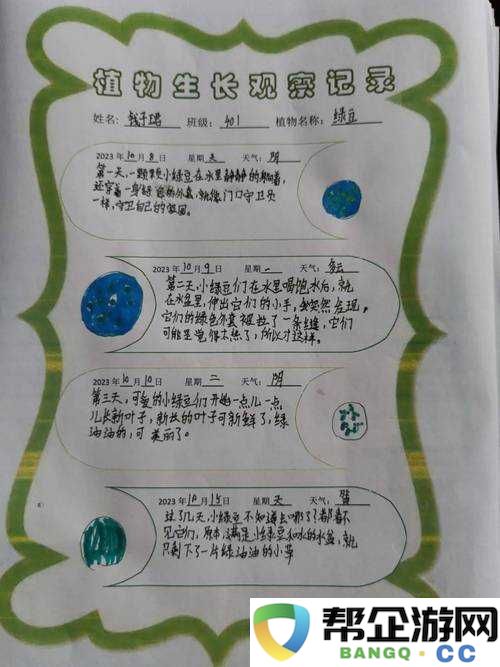 植物生长观察记录
姓名: 钱子 班级: 401 植物名称: 绿豆
2023年10月8日 星期天 天气: 阴
第一天,一颗颗小绿豆在水里静静的躺着,
还穿着一身绿色的外套,就像门口守卫员
一样,守卫自己的家园。
2023年10月9日 星期一 天气: 多云
第二天,小绿豆们在水里喝饱水后,就
在水盆里,伸出它们的小手,我突然发现,
它们的绿色外套被拉了一条缝,它们
可能是觉得不热了,所以才这样。
2023年10月10日 星期二 天气: 阴
第三天,可爱的小绿豆们开始一点儿一点
儿长新叶子,新长的叶子可新鲜了,绿
油油的,可美丽了。
2023年10月15日 星期天 天气:
过了几天,小绿豆不知道去哪了?都看不
见它们,原本满是小绿豆和水的水盆,就
只剩下了一片绿油油的小草
帮企游网
BANGQ·CC